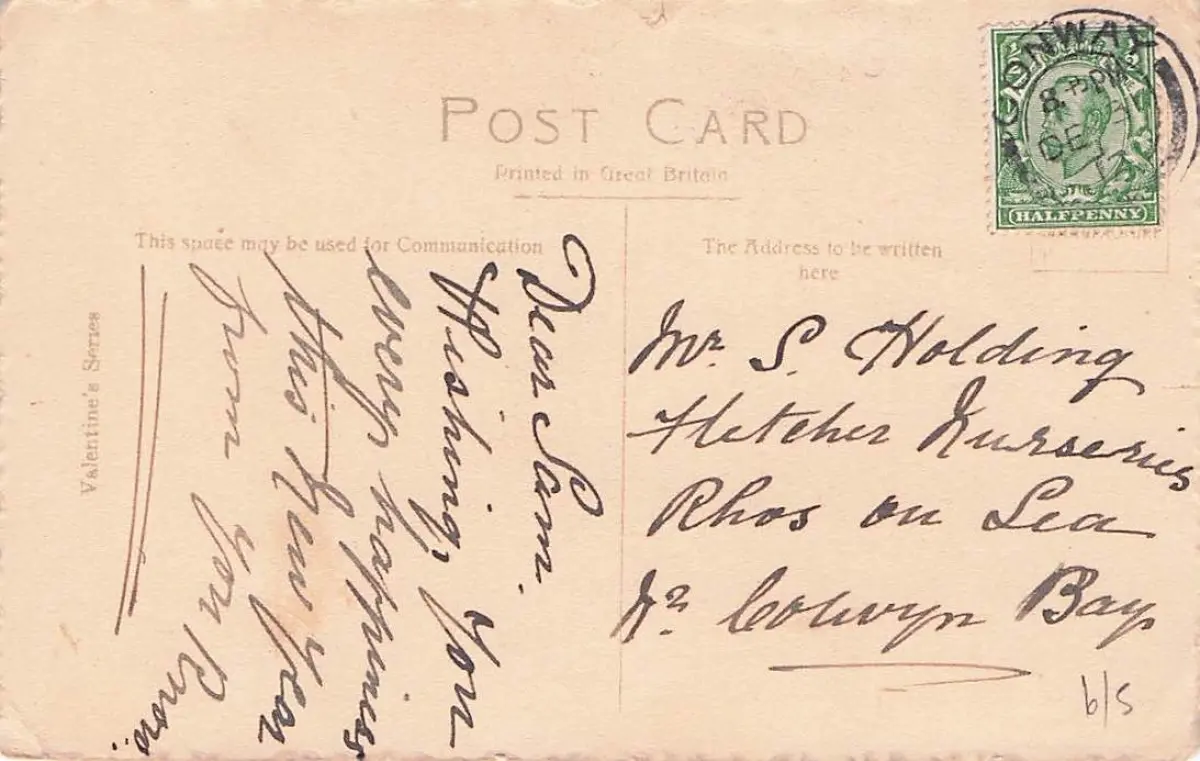 POST CARD
Printed in Great Britain
This space may be used for Communication
The Address to be written
here
Valentine's Series
CONWAY
8 PM
DE
HALFPENNY
Dear Sam.
Wishing, You
every happiness
this New Year
from You Know
Mr. S. Holding
Fletcher Nurseries
Rhos on Sea
Nr. Colwyn Bay
6/S